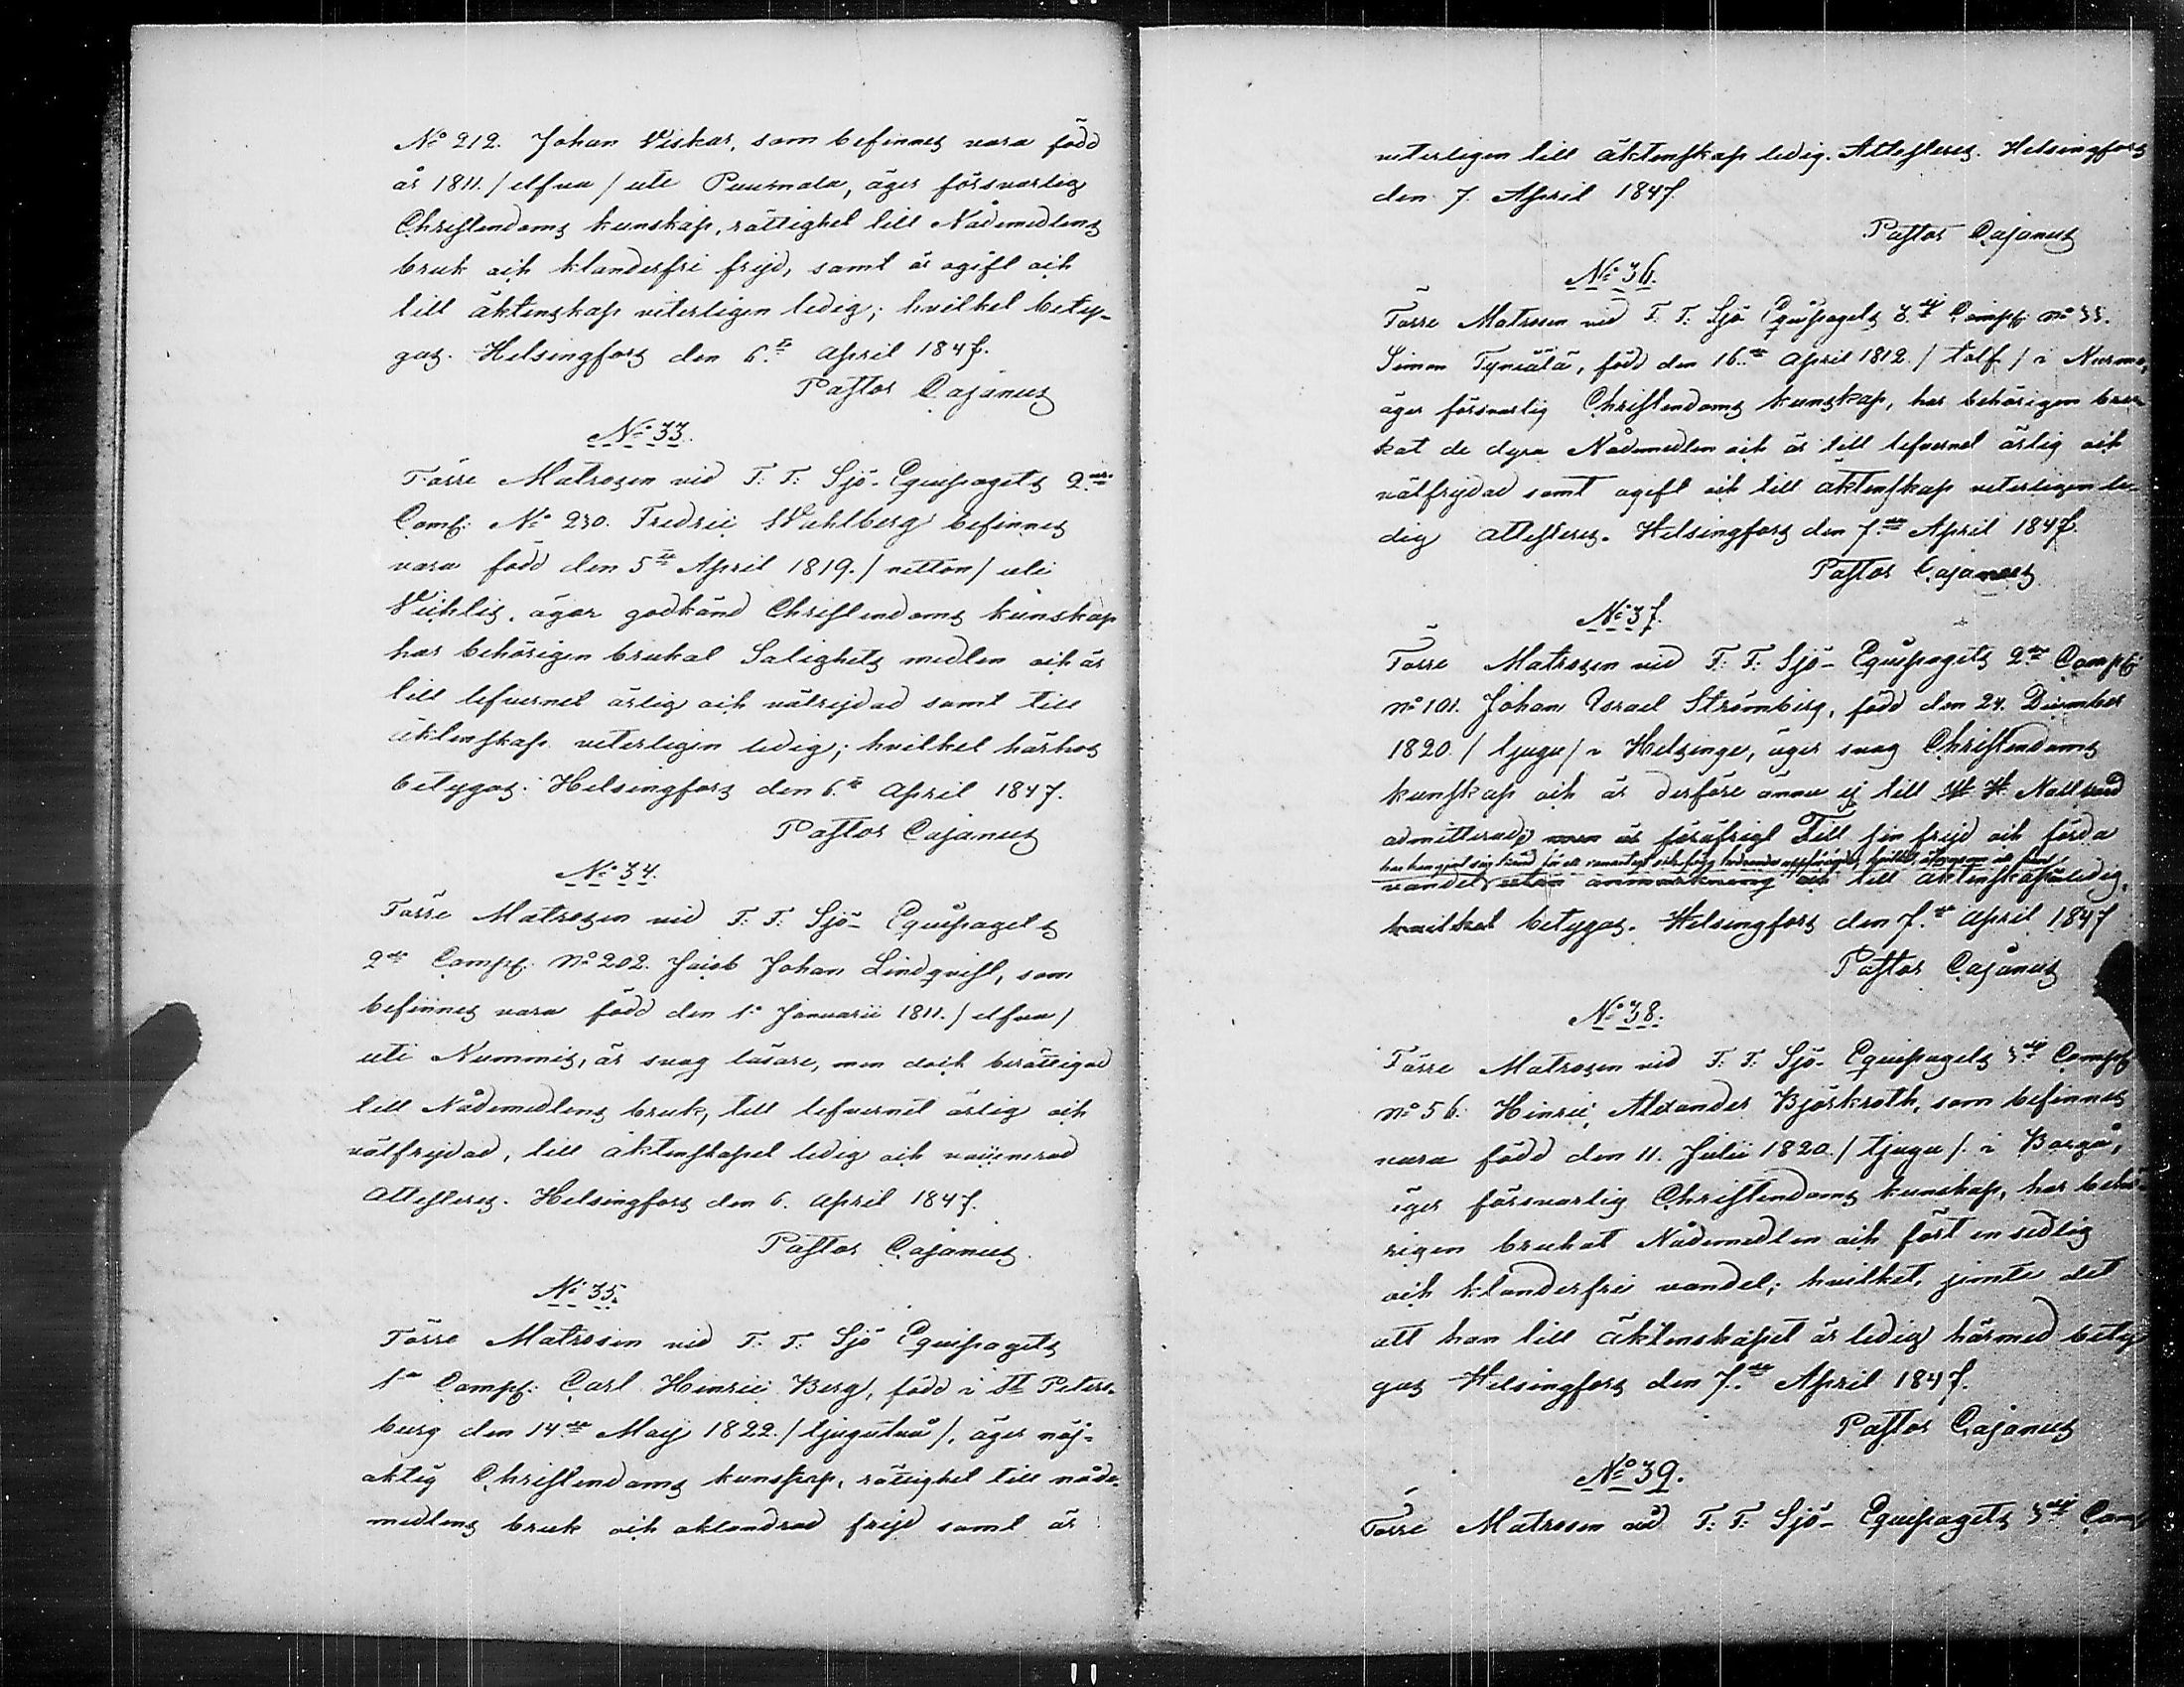 No 212. Johan Viskar, som befinnes vara född
år 1811. / elfva / uti Puumala, äger försvarlig
Christendoms kunskap, rättighet till Nådemedlens
bruk och klanderfri frejd, samt är ogift och
till äktenskap veterligen ledig; hvilket bety-
gas. Helsingfors den 6.te April 1847.
Pastor Cajanus
No 33.
Förre Matrosen vid F. F. Sjö-Equipagets 2dra
Comp: No 230. Fredric Wahlberg befinnes
vara född den 5te April 1819. / nitton / uti
Vichtis, äger godkänd Christendoms kunskap
har behörigen brukat Salighets medlen och är
till lefvernet ärlig och välfrejdad samt till
äktenskap veterligen ledig; hvilket härhos
betygas. Helsingfors den 6.te April 1847.
Pastor Cajanus
No 34.
Förre Matrosen vid F. F. Sjö-Equipagets
2dra Comp: No 202. Jacob Johan Lindqvist, som
befinnes vara född den 1. Januarii 1811. / elfva /
uti Nummis, är svag läsare, men doch berättigad
till Nådemedlens bruk, till lefvernet ärlig och
välfrejdad, till äktenskapet ledig och vaccinerad
Attesteras. Helsingfors den 6. April 1847.
Pastor Cajanus.
No 35.
Förre Matrosen vid F. F. Sjö Equipagets
1a Comp: Carl Hinric Berg, född i St Peters-
burg den 14.de Maij 1822. / tjugutvå /, äger nöj-
aktig Christendoms kunskap, rättighet till nåde-
medlens bruk och oklandrad frejd samt är
veterligen till äktenskap ledig. Attesteras. Helsingfors
den 7. April 1847.
Pastor Cajanus
No 36.
Förre Matrosen vid F. F. Sjö Equipagets 3.dje Comp: No 33.
Simon Tyniälä, född den 16.de April 1812. / tolf / i Nurmo,
äger försvarlig Christendoms kunskap, har behörigen bru-
kat de dyra Nådemedlen och är till lefvernet ärlig och
välfrejdad samt ogift och till äktenskap veterligen le-
dig attesteras. Helsingfors den 7.de April 1847.
Pastor Cajanus
No 37.
Förre Matrosen vid F. F. Sjö-Equipagets 2dra Comp:
No 101. Johan Israel Strömberg, född den 24. December
1820. / tjugu / i Helsinge, äger svag Christendoms
kunskap och är derföre ännu ej till H. H. Nattvard
admitterad, men är föröfrigt Till sin frejd och förda
har han gjort sig känd för ett
vandel utan anmärkning och till äktenskap ledig,
hvilket betygas. Helsingfors den 7.de April 1847
Pastor Cajanus
No 38.
Förre Matrosen vid F. F. Sjö-Equipagets 3dje Comp:
No 56. Hinric Alexander Björkroth, som befinnes
vara född den 11. Julii 1820. / tjugu /. i Borgå,
äger försvarlig Christendoms kunskap, har behö-
rigen brukat Nådemedlen och fört en sedlig
och klanderfri vandel; hvilket, jemte det
att han till äktenskapet är ledig härmed bety
gas Helsingfors den 7.de April 1847.
Pastor Cajanus
No 39.
Förre Matrosen vid F. F. Sjö-Equipagets 3dje Comp